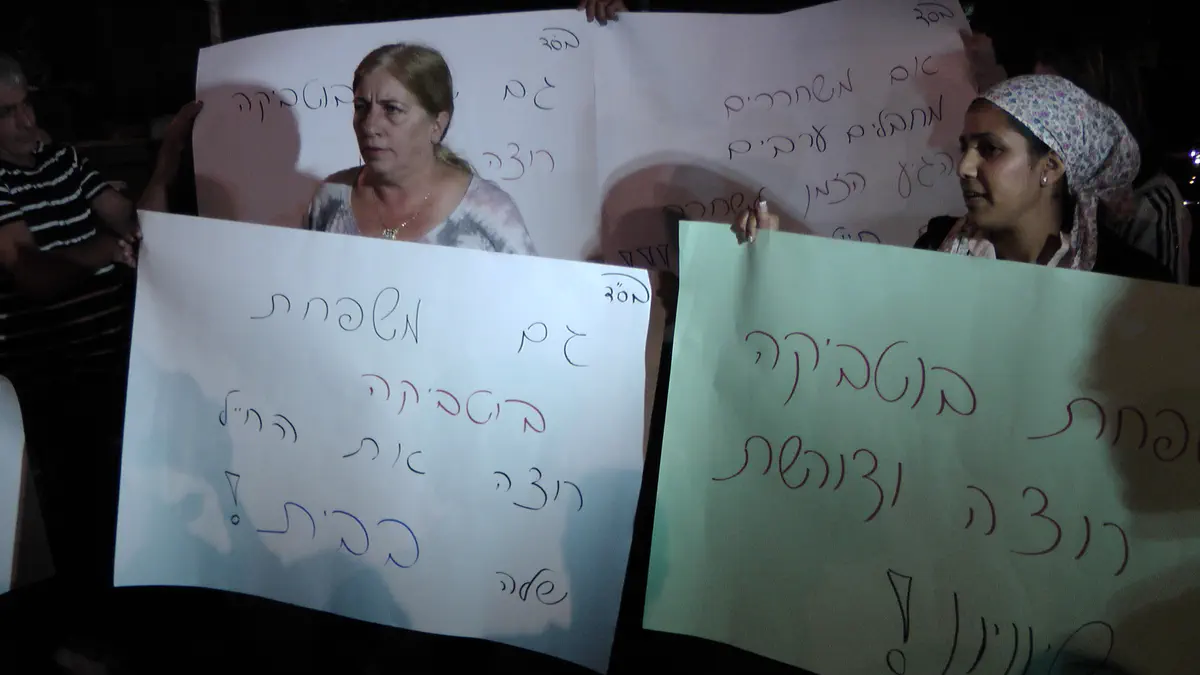 בס"ד
גם
בוטביקה
רוצה
בס"ד
אם משחררים
מחבלים ערבים
הגיע הזמן
בס"ד
גם משפחת
בוטביקה
רוצה את החייל
שלה בבית!
בוטביקה
רוצה ודורשת
שוויון!